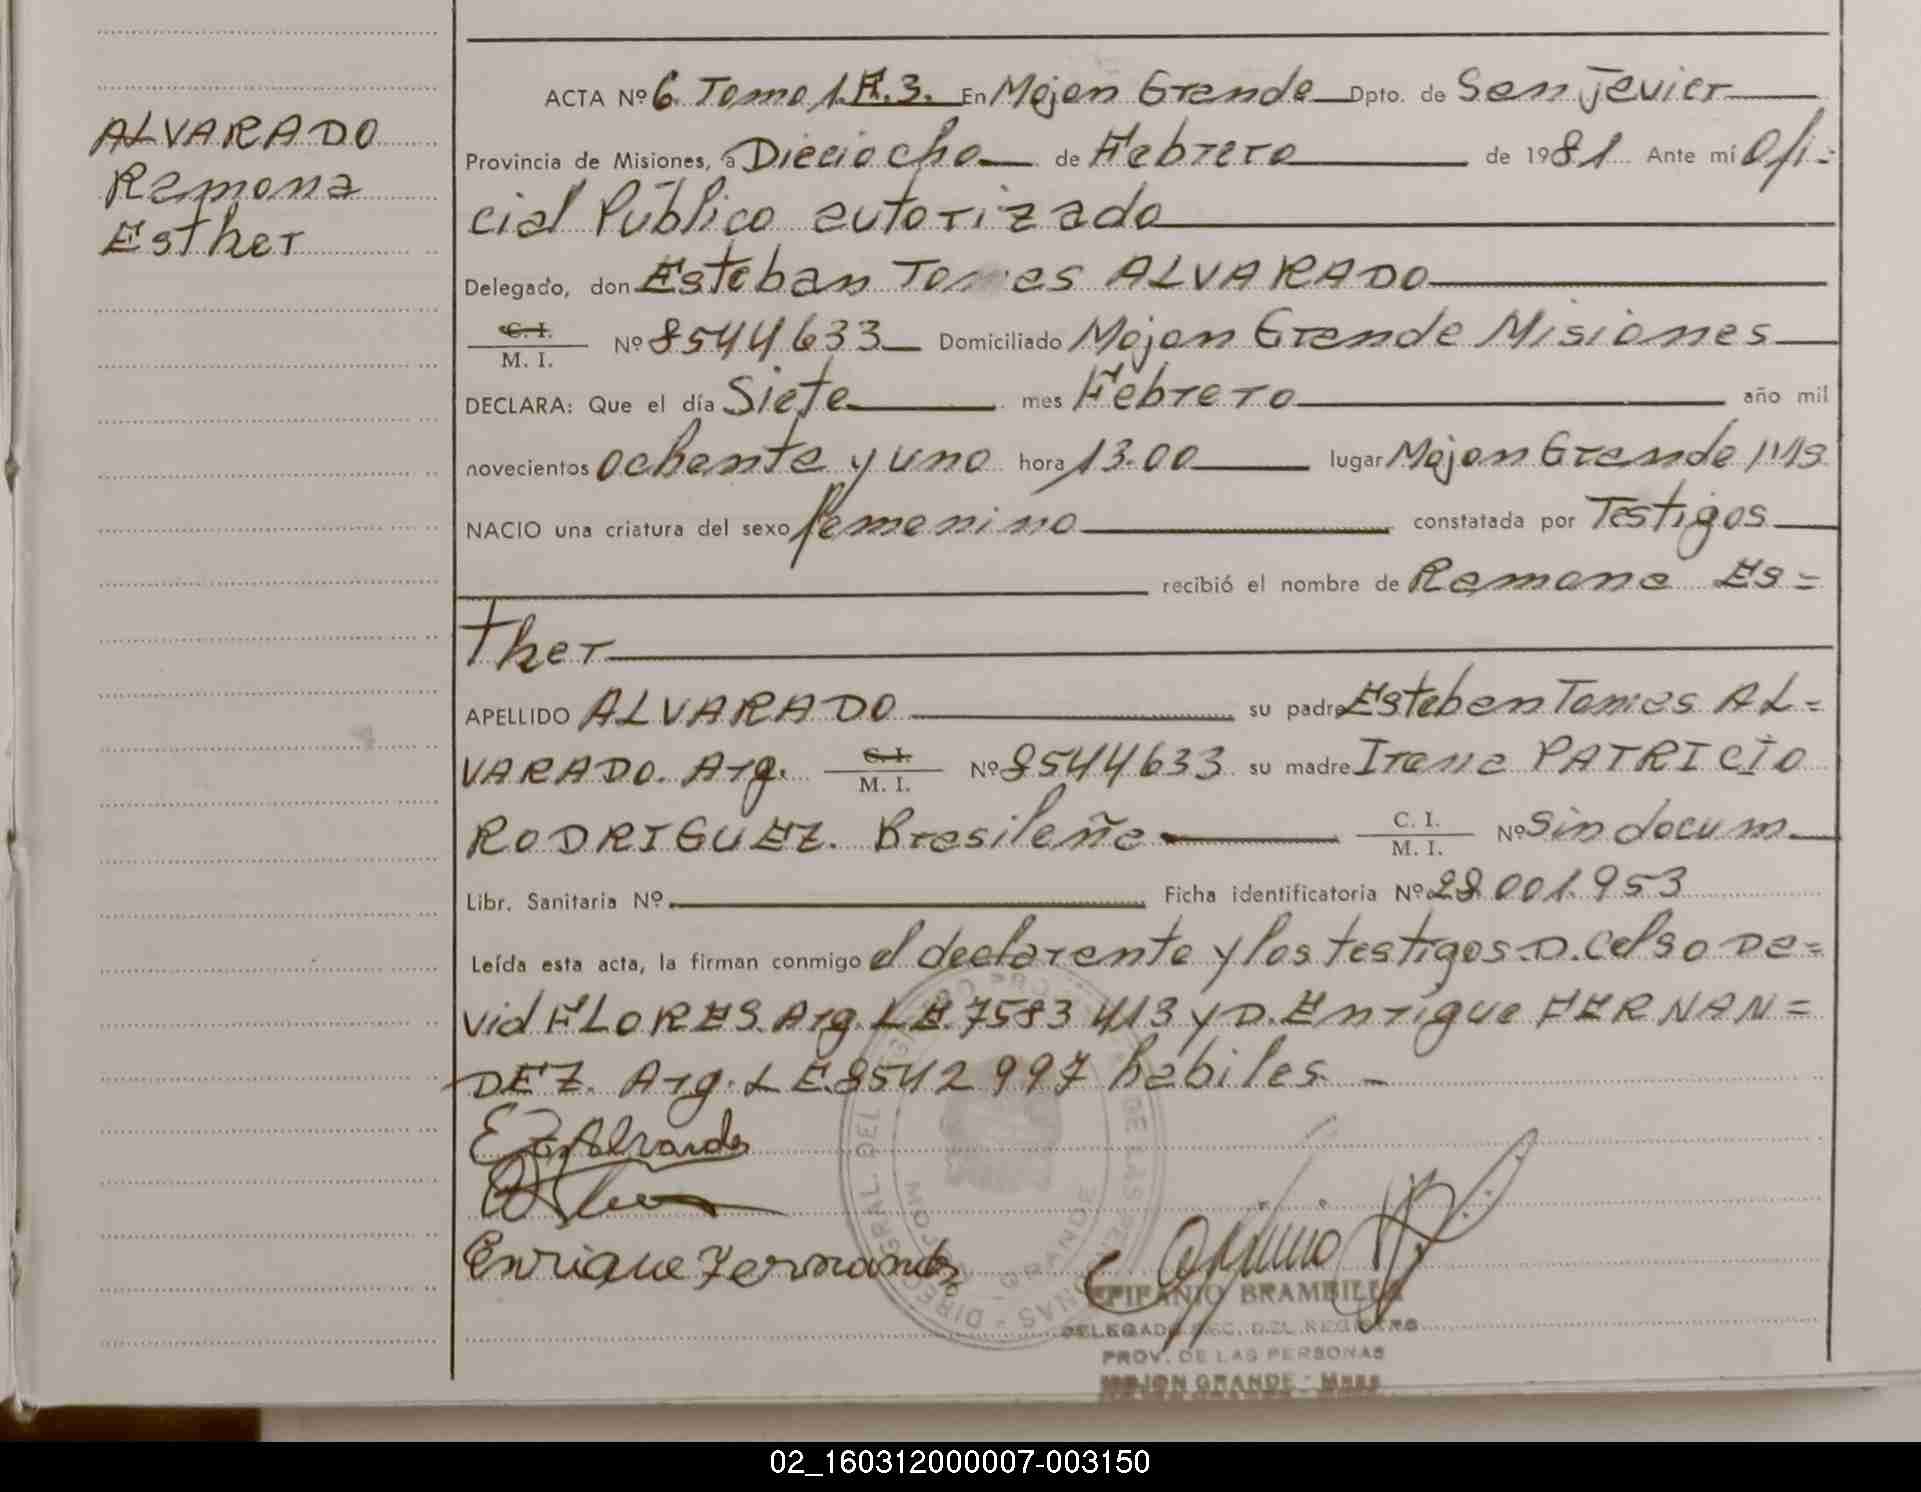 ALVARADO
Ramona
Esther
ACTA Nº 6 Tomo 1. F. 3. En Mojon Grande Dpto. de San Javier
Provincia de Misiones, a Dieciocho de Febrero de 1981 Ante mí Ofi=
cial Público autorizado
Delegado, don Esteban Tomas ALVARADO
C. I.
M. I. Nº 8544633 Domiciliado Mojon Grande Misiones
DECLARA: Que el día Siete mes Febrero año mil
novecientos ochenta y uno hora 13.00 lugar Mojon Grande Ms
NACIO una criatura del sexo femenino constatada por Testigos
recibió el nombre de Ramona Es=
ther
APELLIDO ALVARADO su padre Esteban Tomas AL=
VARADO. Arg. C. I. M. I. Nº 8544633 su madre Irene PATRICIO
RODRIGUEZ. Brasileña C. I. M. I. Nº Sin docum
Libr. Sanitaria Nº Ficha identificatoria Nº 28.001.953
Leída esta acta, la firman conmigo el declarante y los testigos D. Celso Da=
vid FLORES. Arg. L E. 7583413 y D. Enrique FERNAN=
DEZ. Arg. L E. 8542997 habiles -
E T Alvarado
Enrique Fernandez
DIREC GRAL. DEL REGISTRO DE LAS PERSONAS
MOJON GRANDE
EPIFANIO BRAMBILLA
DELEGADO SEC. DEL REGISTRO
PROV. DE LAS PERSONAS
MOJON GRANDE - Mnes
02_160312000007-003150